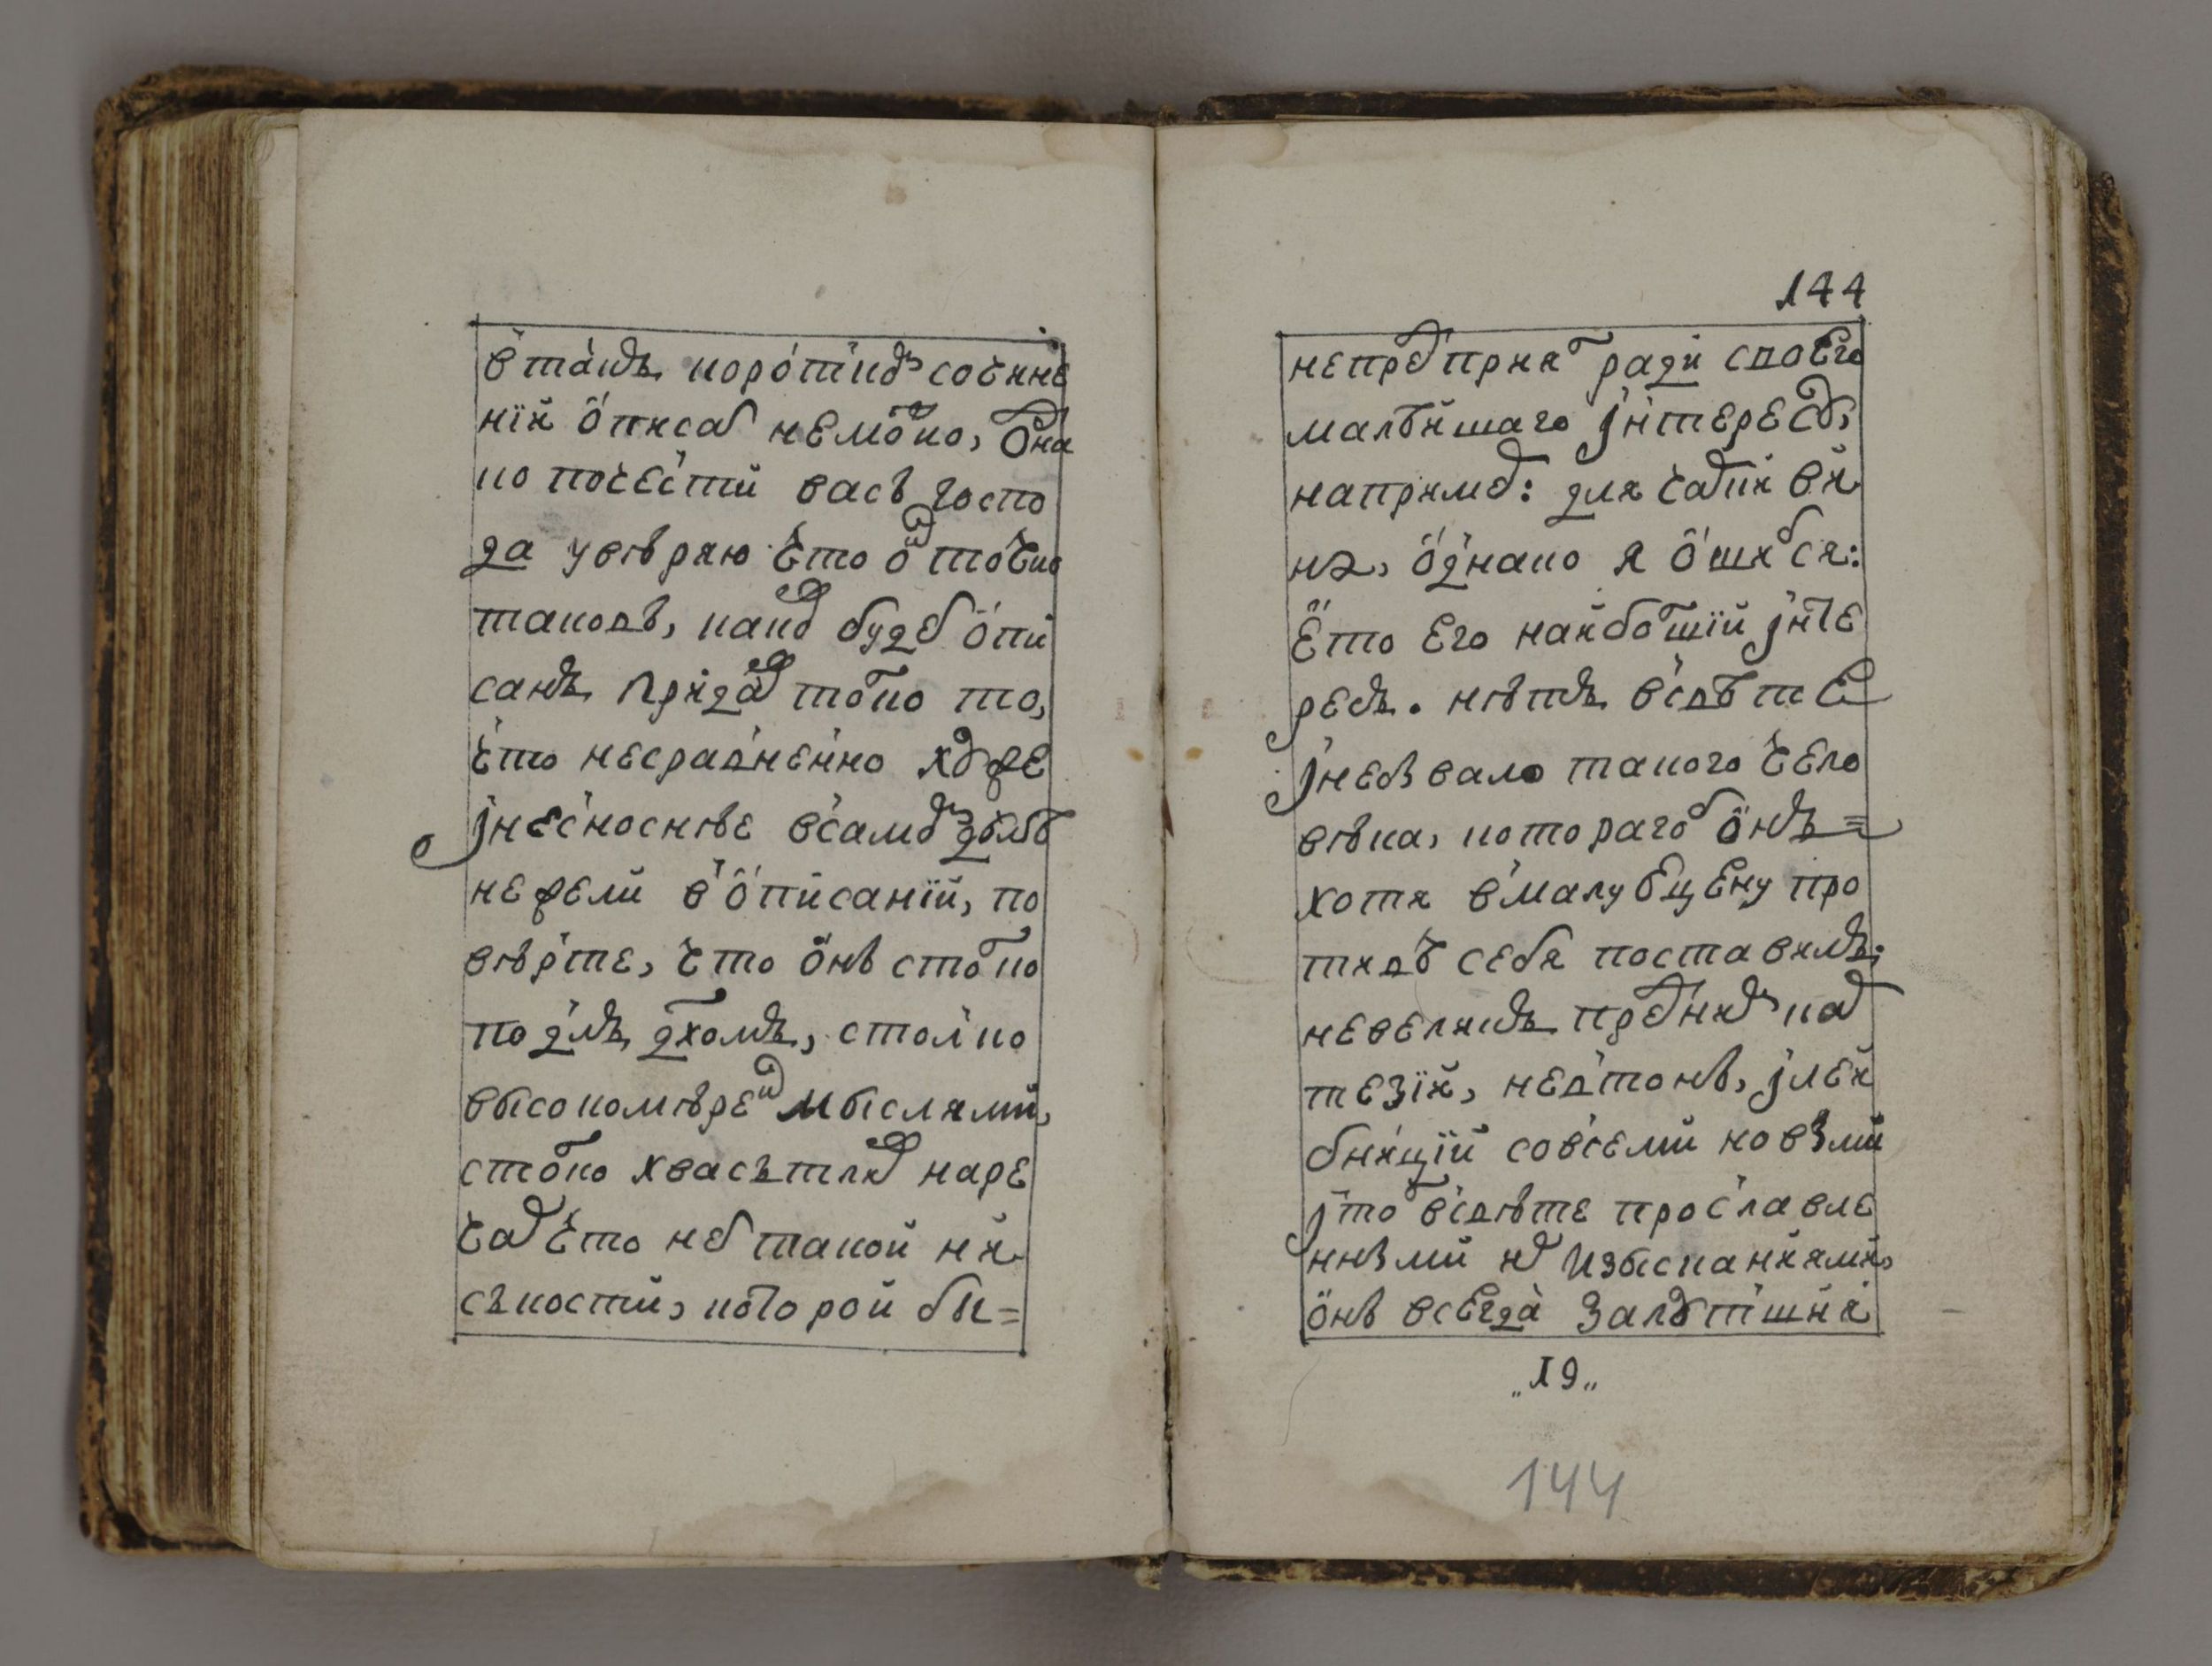 втакъ короткъ сочине
нiи описат неможно, Одна
ко почести васъ госпо
да увѣряю что он точно
таковъ, какъ будет опи
санъ придат токо то,
что несравненно хуже
jнесноснѣе всамъ дѣлѣ
нежели вописанiи, по
вѣрте, что онъ столко
подлъ духомъ, столко
высокомѣрен мыслями,
столко хвастливъ наре
чад что нет такой ни
скости, которой бы=
144
непредприял ради своего
малѣйшаго jнтереса,
наприме: для чашки ви
на, однако я ошибся:
Ето его найболшiй jнте
ресъ. нѣтъ всвѣте
jнебывало такого чело
вѣка, котораго б онъ=
хотя вмалую цену про
тивъ себя поставилъ;
невеликъ пред нимъ кар
тезiй, невтонъ, jлей
бницiй совсеми новыми
jтол всвѣте прославле
нными их изысканиями,
онъ всегда залѣтшия
„19„
144